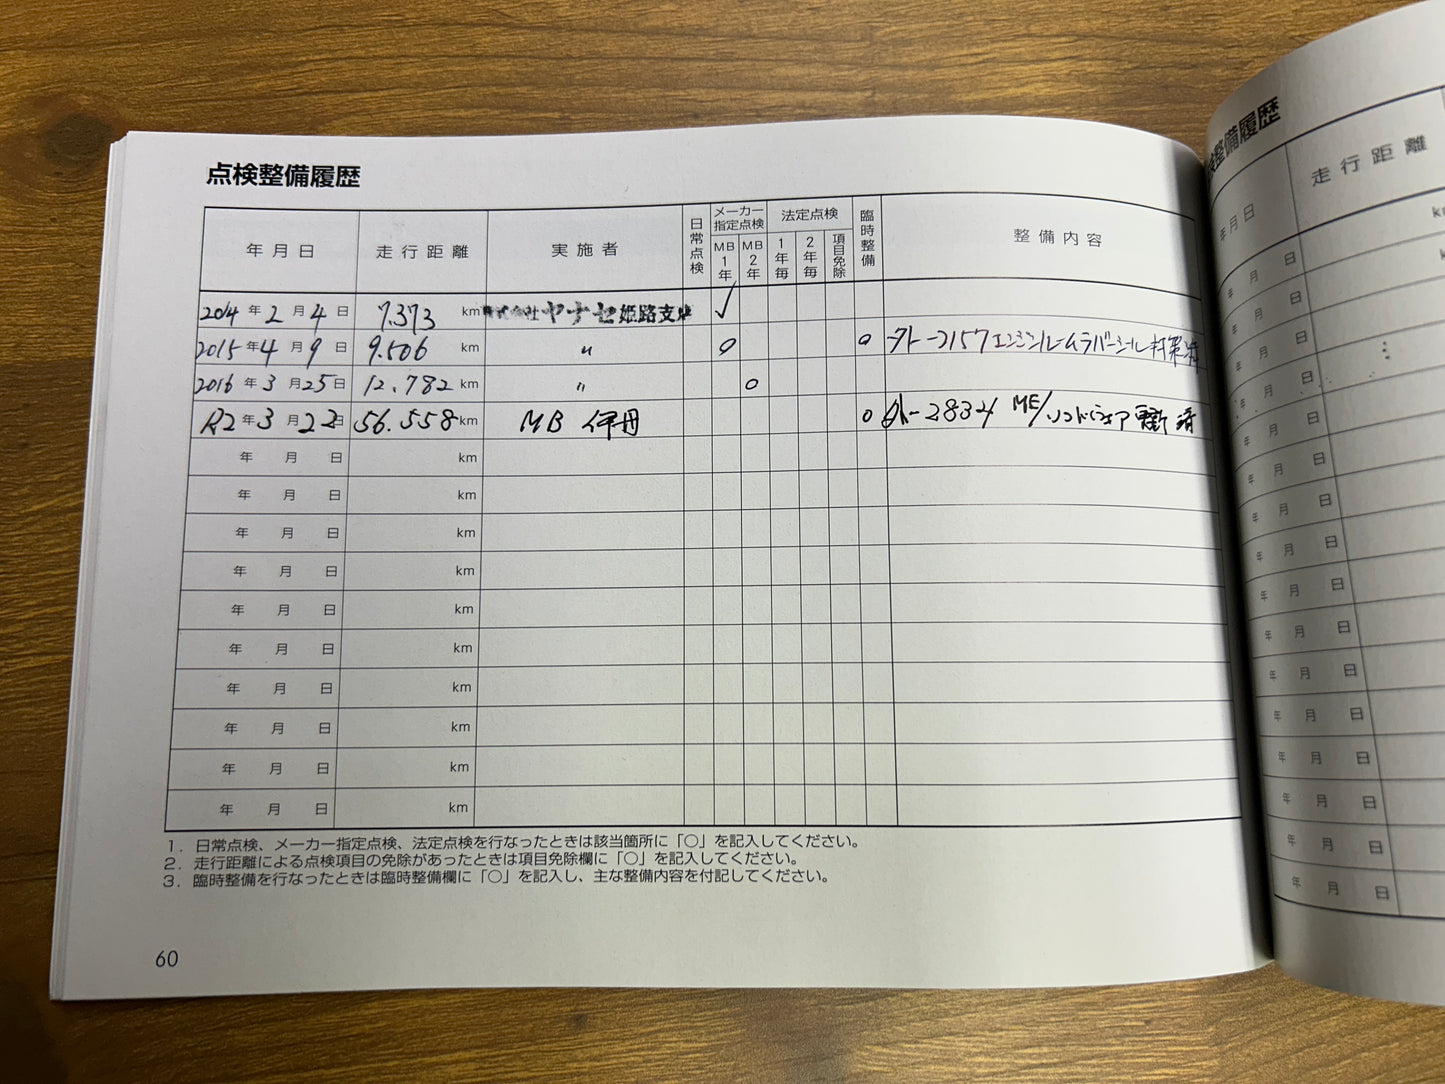 点検整備履歴
年月日 走行距離 実施者 日常点検 メーカー指定点検 MB1年 MB2年 法定点検 1年毎 2年毎 項目免除 臨時整備 整備内容
2014年2月4日 7.373km 株式会社ヤナセ姫路支店 ✓
2015年4月9日 9.506km 〃 ○ ○ 外-2157エンジンルームラバーシール
2016年3月25日 12.782km 〃 ○
R2年3月22日 56.558km MB 伊丹 ○ 外-2834 ME/ソフトウェア更新 済
年 月 日 km
年 月 日 km
年 月 日 km
年 月 日 km
年 月 日 km
年 月 日 km
年 月 日 km
年 月 日 km
年 月 日 km
年 月 日 km
1. 日常点検、メーカー指定点検、法定点検を行なったときは該当箇所に「○」を記入してください。
2. 走行距離による点検項目の免除があったときは項目免除欄に「○」を記入してください。
3. 臨時整備を行なったときは臨時整備欄に「○」を記入し、主な整備内容を付記してください。
60
検整備履歴
年月日 走行距離
年 月 日 km
年 月 日 k
年 月 日
年 月 日
年 月 日
年 月 日
年 月 日
年 月 日
年 月 日
年 月 日
年 月 日
年 月 日
年 月 日
年 月 日
年 月 日
年 月 日